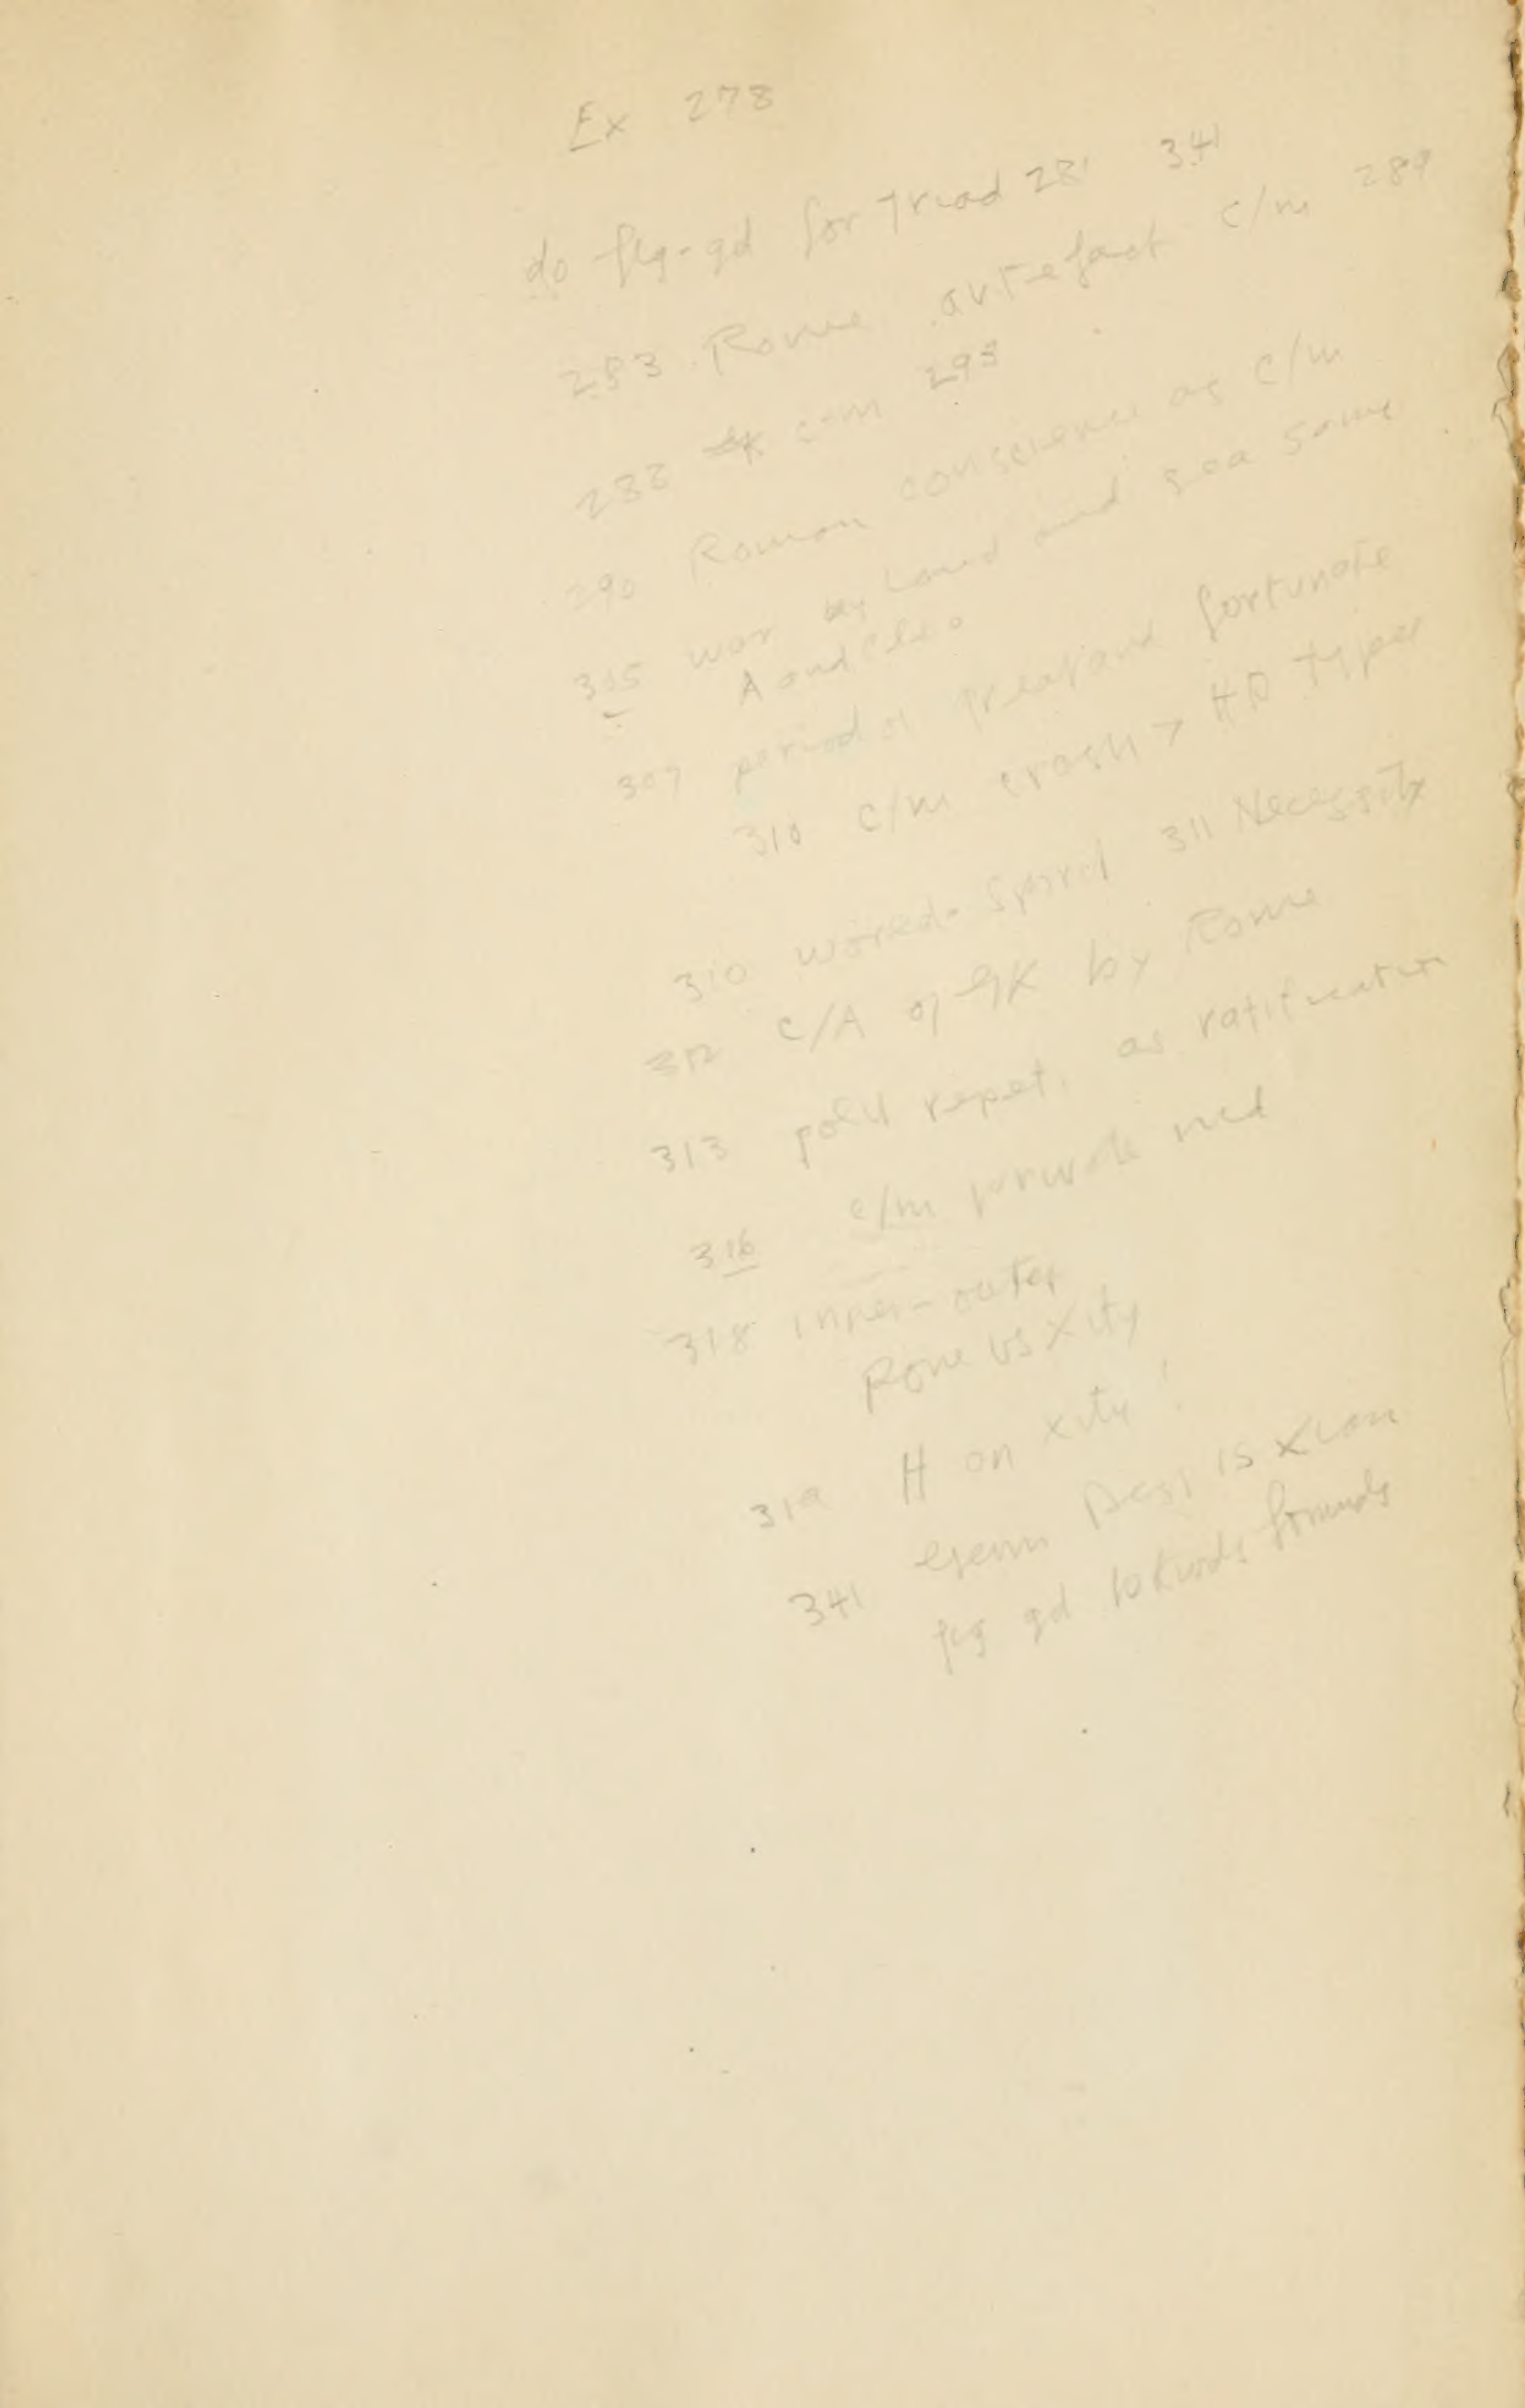 Ex 278
do fig-gd for Triad 281 341
283 Rome artefact c/m 289
288 c-m 295
290 Roman conscience as c/m
305 war by land and sea same
A and Cleo
307 period of great and fortunate
310 c/m crash > HD types
310 world-spirit 311 Necessity
312 C/A of GK by Rome
313 polit repet. as ratification
316 c/m private
318 inner-outer
Rome vs Xity
319 H on Xity!
341 Germ is Xian
fig gd